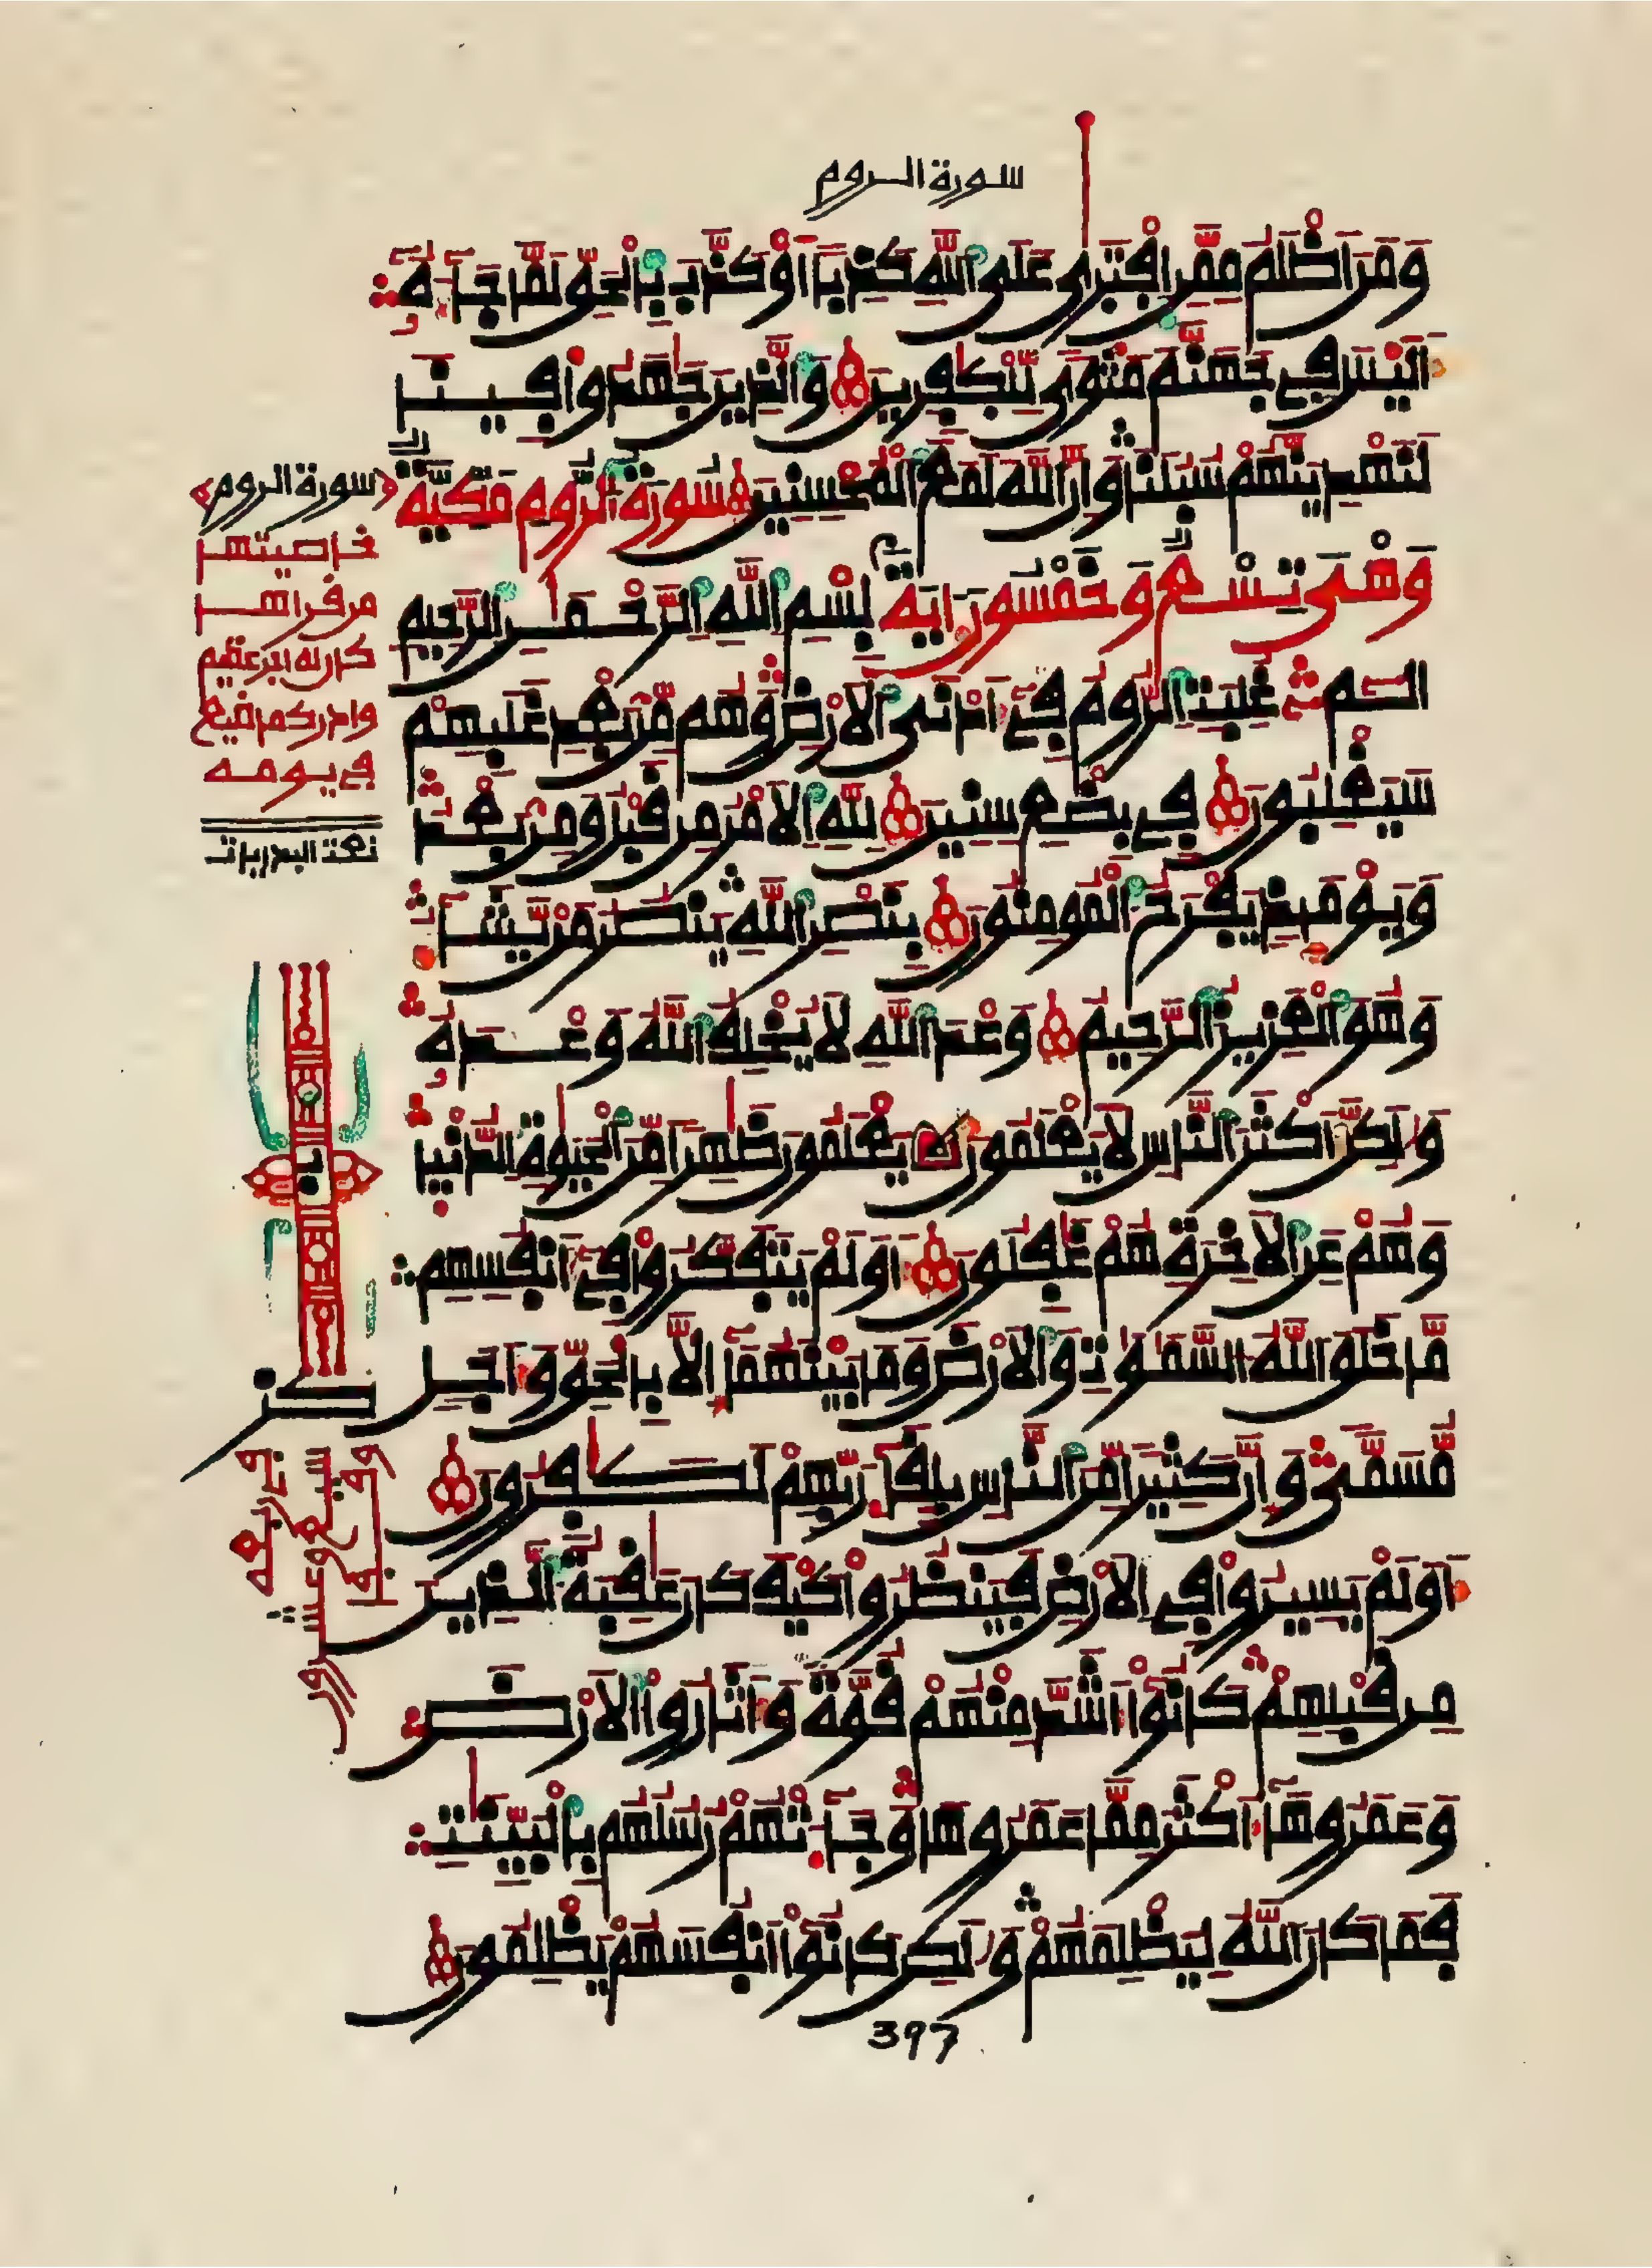 سورة الروم
وَمَنَ اَظْلَمُ مِمَّنِ اِفْتَرَىٰ عَلَى اَللَّهِ كَذِباً اَوْ كَذَّبَ بِالْحَقِّ لَمَّا جَآءَهُ
أَلَيْسَ فِي جَهَنَّمَ مَثْوىً لِّلْكٰفِرِينَ وَالذِينَ جَٰهَدُواْ فِينَا
لَنَهْدِيَنَّهُمْ سُبُلَنَا وَإِنَّ اَللَّهَ لَمَعَ اَلْمُحْسِنِينَ سُورَةُ الرُّومِ مَكِّيَّةٌ
وَهْيَ تِسْعٌ وَخَمْسُونَ ءايَةً بِسْمِ اِللَّهِ اِلرَّحْمَٰنِ اِلرَّحِيمِ
الٓمِّ غُلِبَتِ اِلرُّومُ فِيٓ أَدْنَى اَلَارْضِ وَهُم مِّنۢ بَعْدِ غَلَبِهِمْ
سَيَغْلِبُونَ فِي بِضْعِ سِنِينَ لِلهِ اِلَامْرُ مِن قَبْلُ وَمِنۢ بَعْدُ
وَيَوْمَئِذٍ يَفْرَحُ اُلْمُومِنُونَ بِنَصْرِ اِللَّهِ يَنصُرُ مَنْ يَّشَآءُ
وَهُوَ اَلْعَزِيزُ اُلرَّحِيمُ وَعْدَ اَللَّهِ لَا يُخْلِفُ اُللَّهُ وَعْدَهُ
وَلَٰكِنَّ أَكْثَرَ اَلنَّاسِ لَا يَعْلَمُونَ يَعْلَمُونَ ظَٰهِراً مِّنَ اَلْحَيَوٰةِ اِلدُّنْيَا
وَهُمْ عَنِ اِلَاخِرَةِ هُمْ غَٰفِلُونَ أَوَلَمْ يَتَفَكَّرُواْ فِيٓ أَنفُسِهِم
مَّا خَلَقَ اَللَّهُ اُلسَّمَٰوَٰتِ وَالَارْضَ وَمَا بَيْنَهُمَآ إِلَّا بِالْحَقِّ وَأَجَلٍ
مُّسَمّىً وَإِنَّ كَثِيراً مِّنَ اَلنَّاسِ بِلِقَآءِ رَبِّهِمْ لَكَٰفِرُونَ
أَوَلَمْ يَسِيرُواْ فِي اِلَارْضِ فَيَنظُرُواْ كَيْفَ كَانَ عَٰقِبَةُ اُلذِينَ
مِن قَبْلِهِمْ كَانُوٓاْ أَشَدَّ مِنْهُمْ قُوَّةً وَأَثَارُواْ اُلَارْضَ
وَعَمَرُوهَآ أَكْثَرَ مِمَّا عَمَرُوهَا وَجَآءَتْهُمْ رُسُلُهُم بِالْبَيِّنَٰتِ
فَمَا كَانَ اَللَّهُ لِيَظْلِمَهُمْ وَلَٰكِن كَانُوٓاْ أَنفُسَهُمْ يَظْلِمُونَ
سورة الروم
خاصيتها
من قراها
كان له اجر عظيم
وادرك ما ضيع
في يومه
كن
397